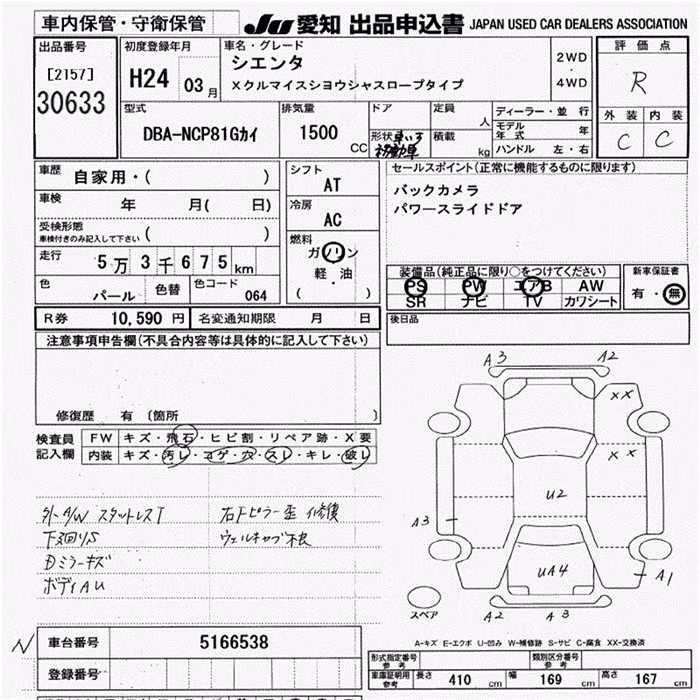 車内保管・守衛保管
JU 愛知 出品申込書 JAPAN USED CAR DEALERS ASSOCIATION
出品番号
[2157]
30633
初度登録年月
H24 03月
車名・グレード
シエンタ
Xクルマイスシヨウシャスロープタイプ
2WD
・
4WD
評価点
R
外装 内装
C C
型式
DBA-NCP81Gカイ
排気量
1500 CC
ドア
形状 車いす移動車
定員 人
積載 kg
ディーラー・並行
モデル年式 年
ハンドル 左・右
車歴
自家用・( )
車検 年 月( 日)
受検形態
車検付きのみ記入して下さい ( )
走行 5万3千675km
色 パール 色替 色コード 064
シフト
AT
冷房
AC
燃料
ガソリン
軽・油
( )
セールスポイント(正常に機能するものに限ります)
バックカメラ
パワースライドドア
装備品(純正品に限り○をつけてください)
PS PW エアB AW
SR ナビ TV カワシート
新車保証書
有・無
R券 10,590円 名変通知期限 月 日
後日品
注意事項申告欄(不具合内容等は具体的に記入して下さい)
修復歴 有 〔箇所 〕
検査員記入欄
FW キズ・飛石・ヒビ割・リペア跡・X要
内装 キズ・汚レ・コゲ・穴・スレ・キレ・破レ
外A/W スタットレスT
下廻りS
Dミラーキズ
ボディAU
右Fピラー歪 修復
ウェルキャブ不良
A3 A2
XX
XX
U2
A3
UA4
A1
A2 A3
スペア
N 車台番号 5166538
登録番号
A-キズ E-エクボ U-凹み W-補修跡 S-サビ C-腐食 XX-交換済
形式指定番号 参考
類別区分番号 参考
車庫証明用 参考 長さ 410 cm 幅 169 cm 高さ 167 cm